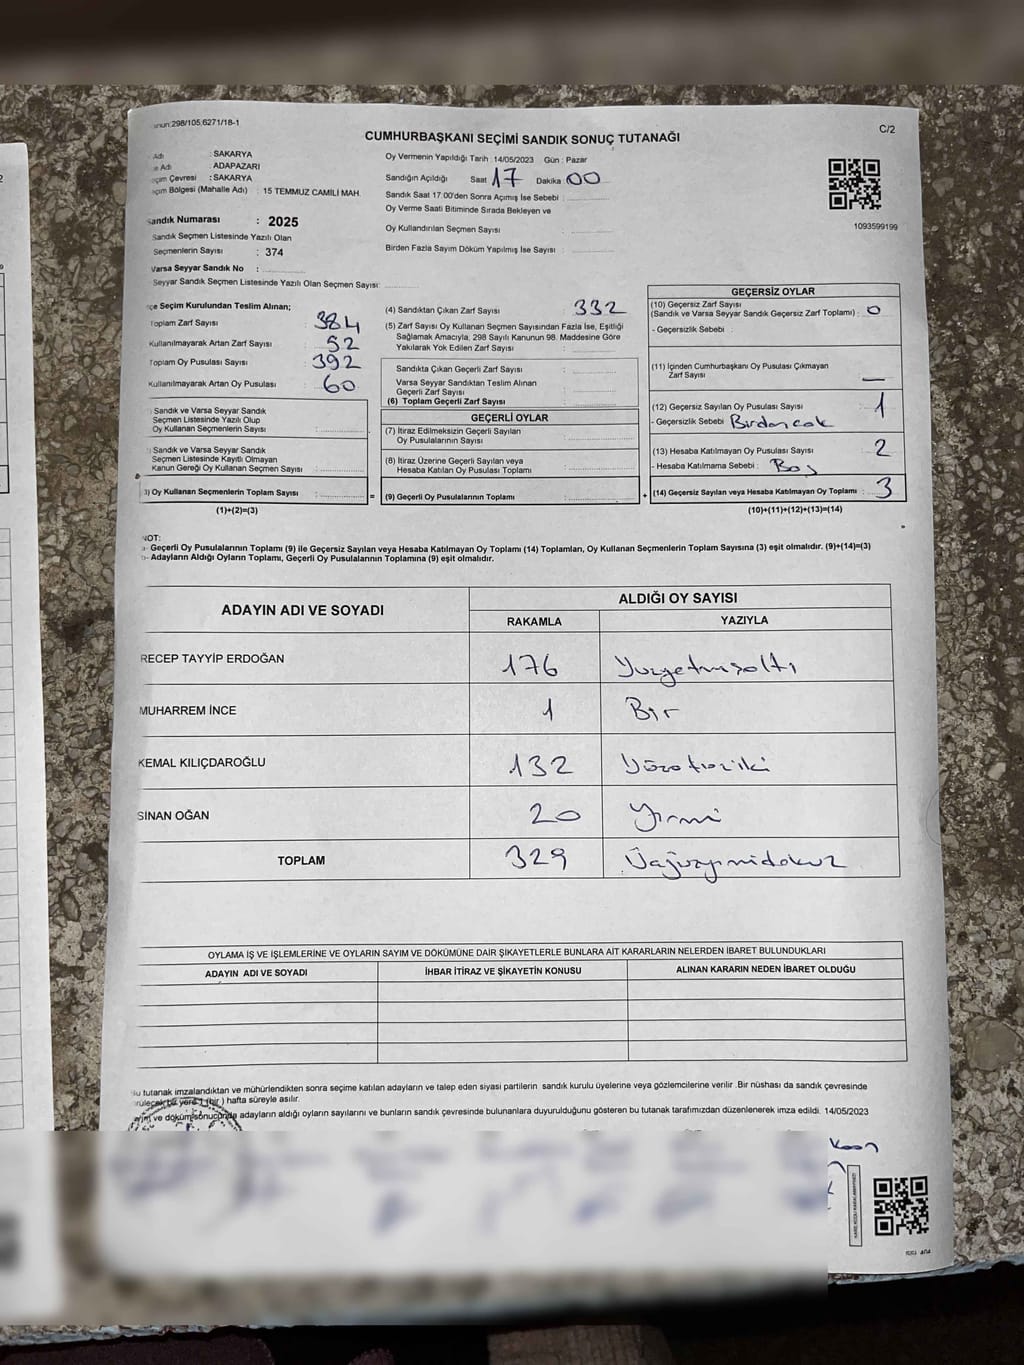 298/105,6271/18-1
C/2
CUMHURBAŞKANI SEÇİMİ SANDIK SONUÇ TUTANAĞI
Adı : SAKARYA
Adı : ADAPAZARI
Çevresi : SAKARYA
Bölgesi (Mahalle Adı) : 15 TEMMUZ CAMİLİ MAH.
Sandık Numarası : 2025
Sandık Seçmen Listesinde Yazılı Olan
Seçmenlerin Sayısı : 374
Varsa Seyyar Sandık No :
Seyyar Sandık Seçmen Listesinde Yazılı Olan Seçmen Sayısı:
Oy Vermenin Yapıldığı Tarih 14/05/2023 Gün : Pazar
Sandığın Açıldığı Saat 17 Dakika : 00
Sandık Saat 17:00'den Sonra Açmış İse Sebebi :
Oy Verme Saati Bitiminde Sırada Bekleyen ve
Oy Kullandırılan Seçmen Sayısı :
Birden Fazla Sayım Döküm Yapılmış İse Sayısı :
1093599199
Seçim Kurulundan Teslim Alınan;
Toplam Zarf Sayısı : 384
Kullanılmayarak Artan Zarf Sayısı : 52
Toplam Oy Pusulası Sayısı : 392
Kullanılmayarak Artan Oy Pusulası : 60
Sandık ve Varsa Seyyar Sandık
Seçmen Listesinde Yazılı Olup
Oy Kullanan Seçmenlerin Sayısı :
Sandık ve Varsa Seyyar Sandık
Seçmen Listesinde Kayıtlı Olmayan
Kanun Gereği Oy Kullanan Seçmen Sayısı :
3) Oy Kullanan Seçmenlerin Toplam Sayısı : =
(1)+(2)=(3)
(4) Sandıktan Çıkan Zarf Sayısı : 332
(5) Zarf Sayısı Oy Kullanan Seçmen Sayısından Fazla İse, Eşitliği
Sağlamak Amacıyla; 298 Sayılı Kanunun 98. Maddesine Göre
Yakılarak Yok Edilen Zarf Sayısı :
Sandıkta Çıkan Geçerli Zarf Sayısı :
Varsa Seyyar Sandıktan Teslim Alınan
Geçerli Zarf Sayısı :
(6) Toplam Geçerli Zarf Sayısı :
GEÇERLİ OYLAR
(7) İtiraz Edilmeksizin Geçerli Sayılan
Oy Pusulalarının Sayısı :
(8) İtiraz Üzerine Geçerli Sayılan veya
Hesaba Katılan Oy Pusulası Toplamı :
(9) Geçerli Oy Pusulalarının Toplamı : +
GEÇERSİZ OYLAR
(10) Geçersiz Zarf Sayısı
(Sandık ve Varsa Seyyar Sandık Geçersiz Zarf Toplamı) : 0
- Geçersizlik Sebebi :
(11) İçinden Cumhurbaşkanı Oy Pusulası Çıkmayan
Zarf Sayısı : —
(12) Geçersiz Sayılan Oy Pusulası Sayısı : 1
- Geçersizlik Sebebi : Birdençok
(13) Hesaba Katılmayan Oy Pusulası Sayısı : 2
- Hesaba Katılmama Sebebi : Boş
(14) Geçersiz Sayılan veya Hesaba Katılmayan Oy Toplamı : 3
(10)+(11)+(12)+(13)=(14)
NOT:
a- Geçerli Oy Pusulalarının Toplamı (9) ile Geçersiz Sayılan veya Hesaba Katılmayan Oy Toplamı (14) Toplamları, Oy Kullanan Seçmenlerin Toplam Sayısına (3) eşit olmalıdır. (9)+(14)=(3)
b- Adayların Aldığı Oyların Toplamı, Geçerli Oy Pusulalarının Toplamına (9) eşit olmalıdır.
ADAYIN ADI VE SOYADI
ALDIĞI OY SAYISI
RAKAMLA YAZIYLA
RECEP TAYYİP ERDOĞAN 176 Yüzyetmişaltı
MUHARREM İNCE 1 Bir
KEMAL KILIÇDAROĞLU 132 Yüzotuziki
SİNAN OĞAN 20 Yirmi
TOPLAM 329 Üçyüzyirmidokuz
OYLAMA İŞ VE İŞLEMLERİNE VE OYLARIN SAYIM VE DÖKÜMÜNE DAİR ŞİKAYETLERLE BUNLARA AİT KARARLARIN NELERDEN İBARET BULUNDUKLARI
ADAYIN ADI VE SOYADI İHBAR İTİRAZ VE ŞİKAYETİN KONUSU ALINAN KARARIN NEDEN İBARET OLDUĞU
Bu tutanak imzalandıktan ve mühürlendikten sonra seçime katılan adayların ve talep eden siyasi partilerin sandık kurulu üyelerine veya gözlemcilerine verilir .Bir nüshası da sandık çevresinde
bir yere 1 (bir ) hafta süreyle asılır.
ve döküm sonucunda adayların aldığı oyların sayılarını ve bunların sandık çevresinde bulunanlara duyurulduğunu gösteren bu tutanak tarafımızdan düzenlenerek imza edildi. 14/05/2023